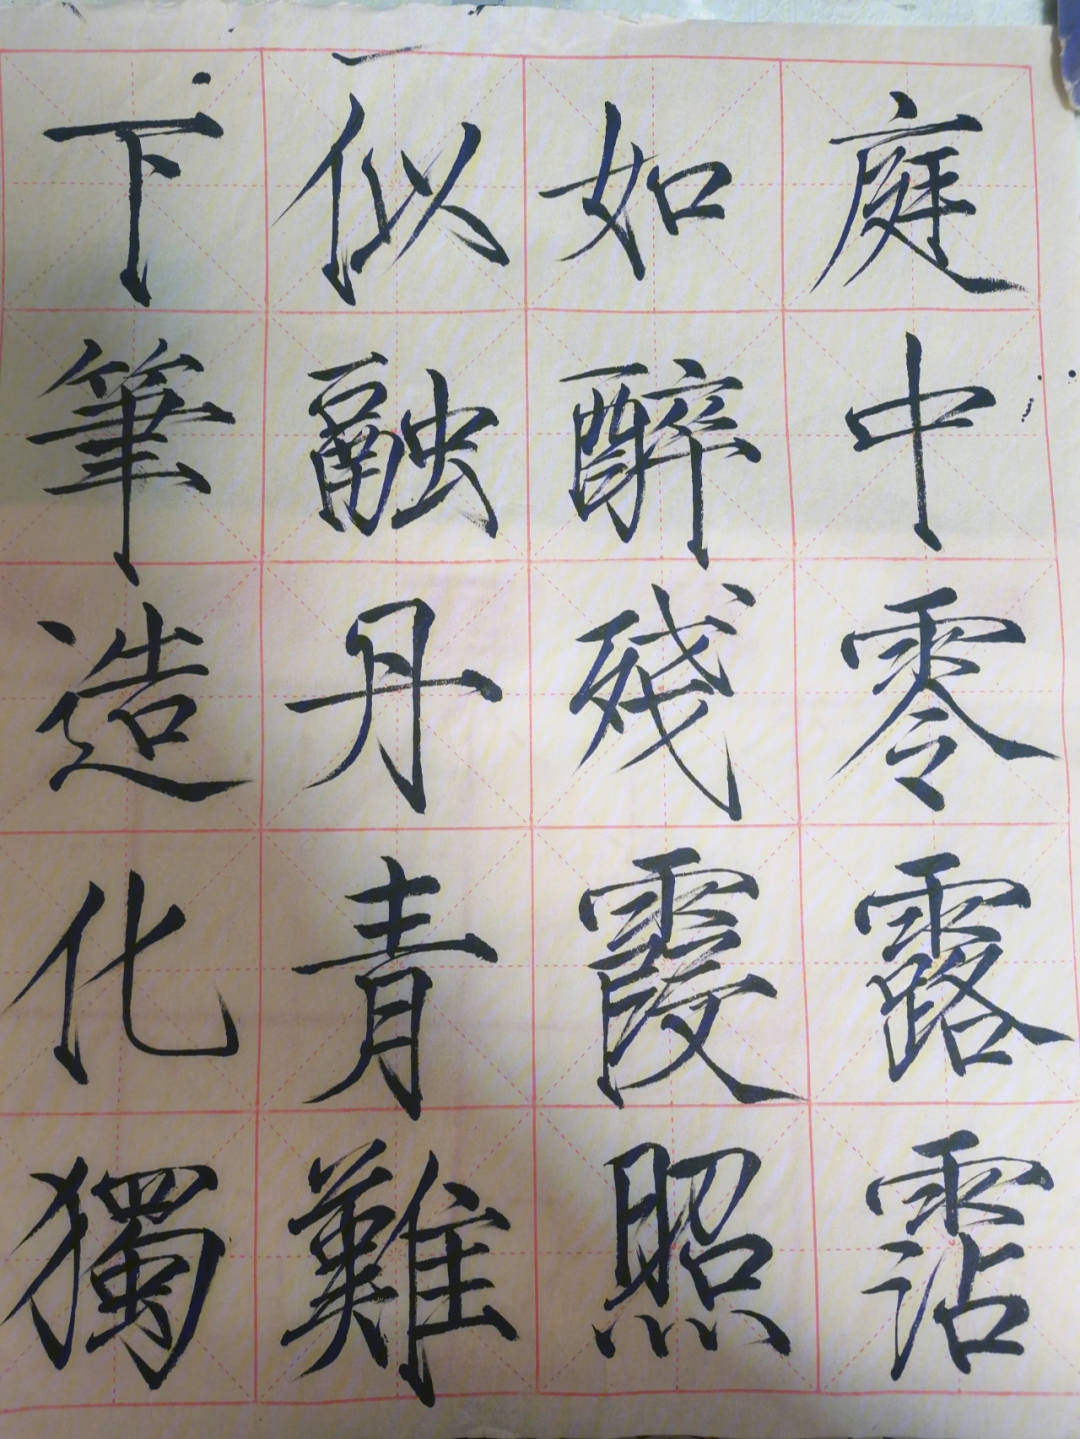 庭中零露霑
如醉殘霞照
似融丹青難
下筆造化獨